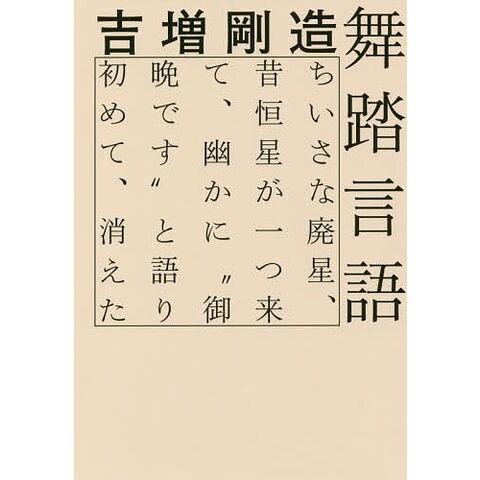 舞踏言語
吉増剛造
ちいさな廃星、
昔恒星が一つ来
て、幽かに〝御
晩です〟と語り
初めて、消えた